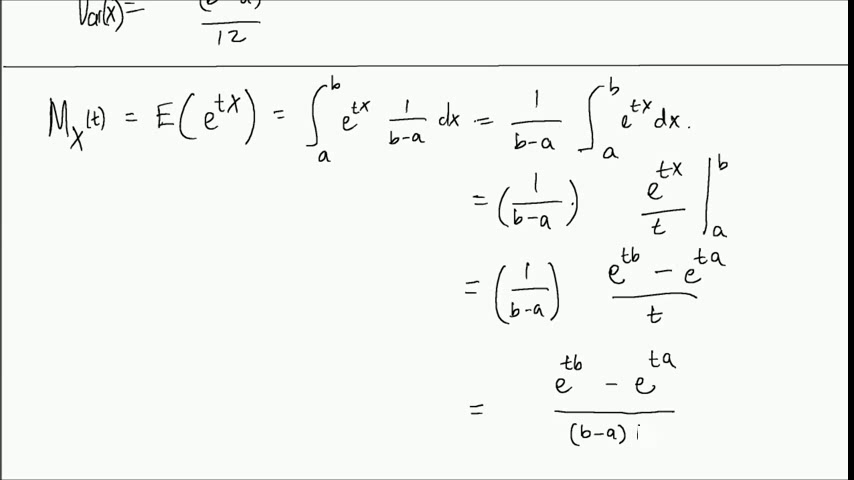 Var(X)= (b-a) / 12
M_X(t) = E(e^{tX}) = ∫_a^b e^{tx} 1/(b-a) dx = 1/(b-a) ∫_a^b e^{tx} dx.
= (1/(b-a)) e^{tx}/t |_a^b
= (1/(b-a)) (e^{tb} - e^{ta})/t
= (e^{tb} - e^{ta})/((b-a)